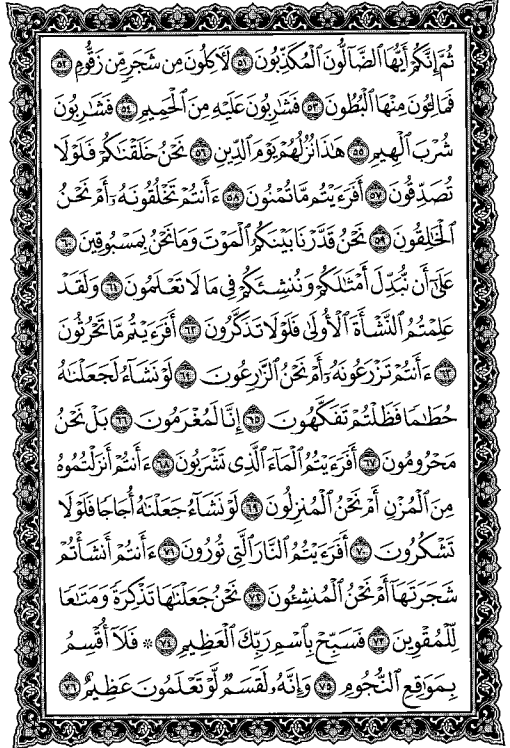 ثُمَّ إِنَّكُمْ أَيُّهَا ٱلضَّآلُّونَ ٱلْمُكَذِّبُونَ ٥١ لَأٓكِلُونَ مِن شَجَرٍ مِّن زَقُّومٍ ٥٢
فَمَالِـُٔونَ مِنْهَا ٱلْبُطُونَ ٥٣ فَشَٰرِبُونَ عَلَيْهِ مِنَ ٱلْحَمِيمِ ٥٤ فَشَٰرِبُونَ
شُرْبَ ٱلْهِيمِ ٥٥ هَٰذَا نُزُلُهُمْ يَوْمَ ٱلدِّينِ ٥٦ نَحْنُ خَلَقْنَٰكُمْ فَلَوْلَا
تُصَدِّقُونَ ٥٧ أَفَرَءَيْتُم مَّا تُمْنُونَ ٥٨ ءَأَنتُمْ تَخْلُقُونَهُۥٓ أَمْ نَحْنُ
ٱلْخَٰلِقُونَ ٥٩ نَحْنُ قَدَّرْنَا بَيْنَكُمُ ٱلْمَوْتَ وَمَا نَحْنُ بِمَسْبُوقِينَ ٦٠
عَلَىٰٓ أَن نُّبَدِّلَ أَمْثَٰلَكُمْ وَنُنشِئَكُمْ فِى مَا لَا تَعْلَمُونَ ٦١ وَلَقَدْ
عَلِمْتُمُ ٱلنَّشْأَةَ ٱلْأُولَىٰ فَلَوْلَا تَذَكَّرُونَ ٦٢ أَفَرَءَيْتُم مَّا تَحْرُثُونَ
٦٣ ءَأَنتُمْ تَزْرَعُونَهُۥٓ أَمْ نَحْنُ ٱلزَّٰرِعُونَ ٦٤ لَوْ نَشَآءُ لَجَعَلْنَٰهُ
حُطَٰمًا فَظَلْتُمْ تَفَكَّهُونَ ٦٥ إِنَّا لَمُغْرَمُونَ ٦٦ بَلْ نَحْنُ
مَحْرُومُونَ ٦٧ أَفَرَءَيْتُمُ ٱلْمَآءَ ٱلَّذِى تَشْرَبُونَ ٦٨ ءَأَنتُمْ أَنزَلْتُمُوهُ
مِنَ ٱلْمُزْنِ أَمْ نَحْنُ ٱلْمُنزِلُونَ ٦٩ لَوْ نَشَآءُ جَعَلْنَٰهُ أُجَاجًا فَلَوْلَا
تَشْكُرُونَ ٧٠ أَفَرَءَيْتُمُ ٱلنَّارَ ٱلَّتِى تُورُونَ ٧١ ءَأَنتُمْ أَنشَأْتُمْ
شَجَرَتَهَآ أَمْ نَحْنُ ٱلْمُنشِـُٔونَ ٧٢ نَحْنُ جَعَلْنَٰهَا تَذْكِرَةً وَمَتَٰعًا
لِّلْمُقْوِينَ ٧٣ فَسَبِّحْ بِٱسْمِ رَبِّكَ ٱلْعَظِيمِ ٧٤ * فَلَآ أُقْسِمُ
بِمَوَٰقِعِ ٱلنُّجُومِ ٧٥ وَإِنَّهُۥ لَقَسَمٌ لَّوْ تَعْلَمُونَ عَظِيمٌ ٧٦